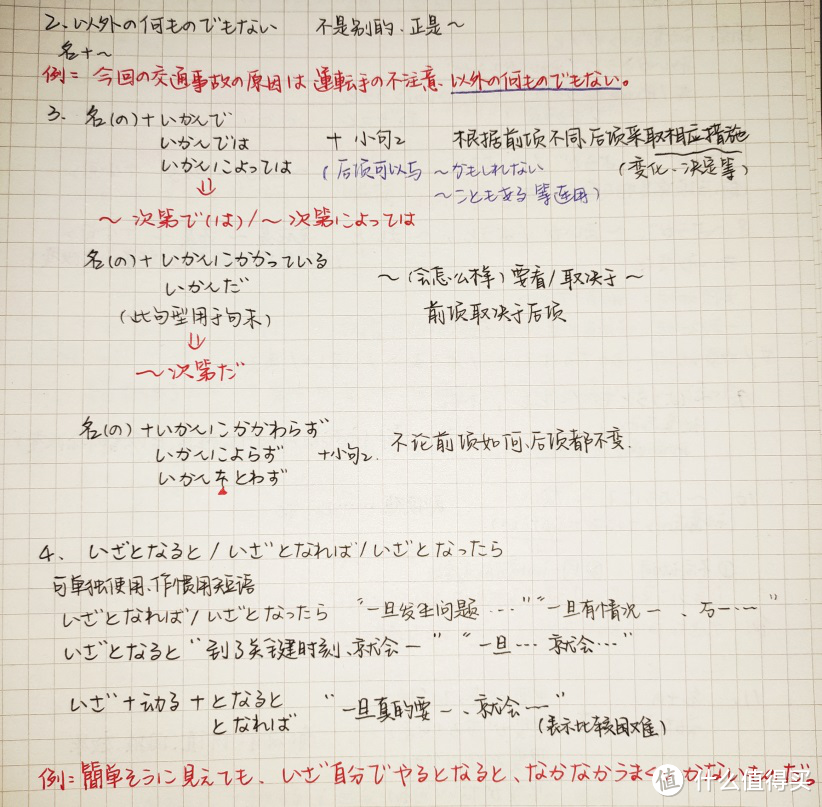 2. 以外の何ものでもない 不是别的、正是～
名+～
例= 今回の交通事故の原因は運転手の不注意以外の何ものでもない。
3. 名(の)+いかんで
いかんでは + 小句2 根据前项不同、后项采取相应措施
いかんによっては (后项可以与 ～かもしれない (变化、决定等)
～こともある 等连用)
⇓
～ 次第で(は)/～次第によっては
名(の)+いかんにかかっている
いかんだ ～(会怎么样)要看/取决于～
(此句型用于句末) 前项取决于后项
⇓
～次第だ
名(の)+いかんにかかわらず
いかんによらず +小句2. 不论前项如何、后项都不变.
いかんをとわず
4、いざとなると/いざとなれば/いざとなったら
可单独使用、作惯用短语
いざとなれば/いざとなったら “一旦发生问题…” “一旦有情况—、万一—”
いざとなると “到了关键时刻、就会—” “一旦… 就会…”
いざ+动る+となると “一旦真的要—、就会—”
となれば (表示比较困难)
例= 簡単そうに見えても、いざ自分でやるとなると、なかなかうまく
值 什么值得买